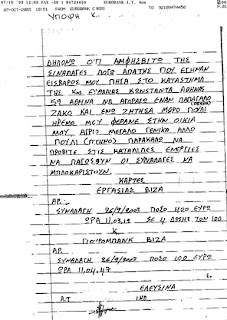 07/10 '03
EUROBANK I.T. 6os
07-OCT-2003 10:15 FROM EUROBANK CARDS TO 92108474450
ΥΠΟΨΗ Κ...
ΔΗΛΩΝΩ ΟΤΙ ΑΜΦΙΣΒΙΤΩ ΤΗΣ
ΣΥΝΑΛΑΓΕΣ ΛΟΓΩ ΑΠΑΤΗΣ ΠΟΥ ΕΓΙΝΑΝ
ΕΙΣΒΑΡΟΣ ΜΟΥ ΠΗΓΑ ΣΤΟ ΚΑΤΑΣΤΗΜΑ
ΤΗΣ ΚΑΣ ΕΥΔΟΞΙΑΣ ΚΩΝΣΤΑΝΤΑ ΑΘΗΝΑΣ
59 ΑΘΗΝΑ ΝΑ ΑΓΟΡΑΣΩ ΕΝΑΝ ΠΑΠΑΓΑΛΟ
ΖΑΚΟ ΚΑΙ ΕΝΩ ΖΗΤΗΣΑ ΜΩΡΟ ΠΟΥΛΙ
ΗΡΕΜΟ ΜΟΥ ΦΕΡΑΝΕ ΣΤΗΝ ΟΙΚΙΑ
ΜΟΥ ΑΓΡΙΟ ΜΕΓΑΛΟ ΓΕΝΙΚΑ ΑΛΛΟ
ΠΟΥΛΙ (ΠΤΗΝΟ) ΠΑΡΑΚΑΛΩ ΝΑ
ΠΡΟΒΙΤΕ ΣΤΙΣ ΚΑΤΑΛΗΛΕΣ ΕΝΕΡΓΙΕΣ
ΝΑ ΠΑΓΩΣΟΥΝ ΟΙ ΣΥΝΑΛΑΓΕΣ ΝΑ
ΜΠΛΟΚΑΡΙΣΤΟΥΝ.
ΚΑΡΤΕΣ
ΕΡΓΑΣΙΑΣ ΒΙΖΑ
ΑΡ.
ΣΥΝΑΛΑΓΗ 26/9/2003 ΠΟΣΟ 400 ΕΥΡΩ
ΩΡΑ 11.03.12 ΣΕ 4 ΔΟΣΗΣ ΤΩΝ 100
Κ
ΓΙΟΥΡΟΜΠΑΝΚ ΒΙΖΑ
ΑΡ
ΣΥΝΑΛΑΓΗ 26/9/2003 ΠΟΣΟ 100 ΕΥΡΩ
ΩΡΑ 11.04.47
ΕΛΕΥΣΙΝΑ
Α.Τ
ΤΗΛ.